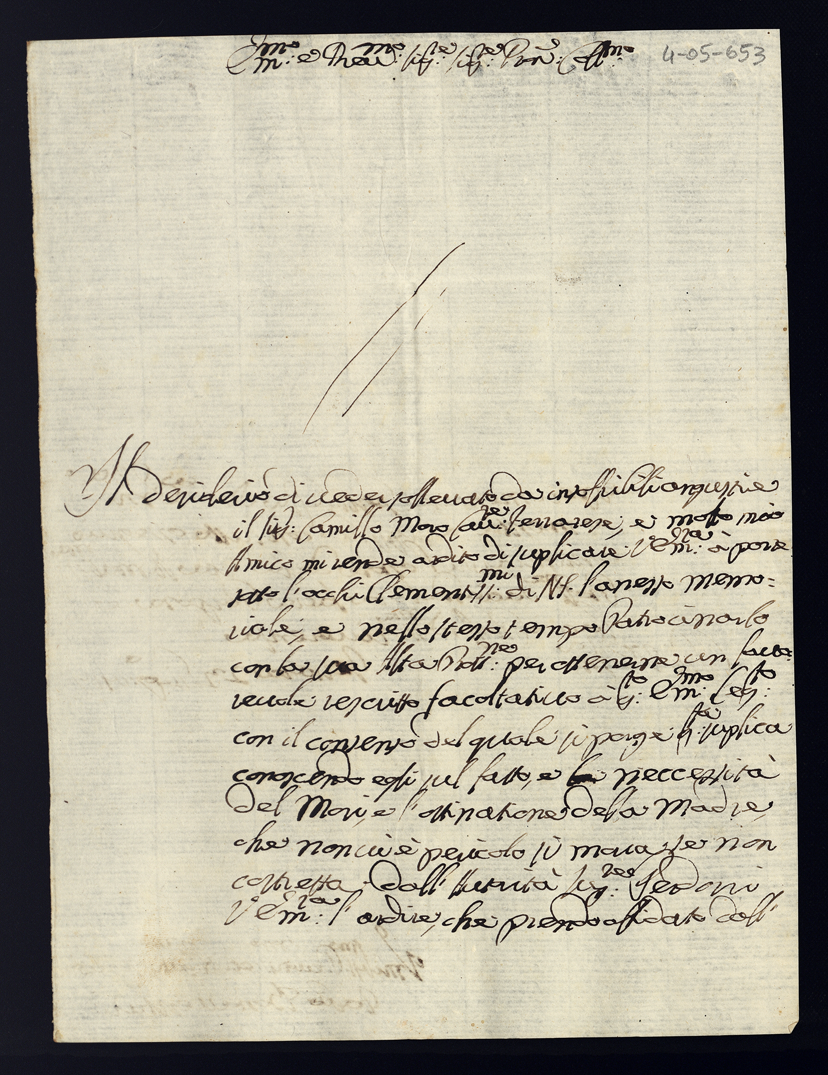 Em.mo e Rev.mo Sig.re Sig.re Pron.e Coll.mo
4-05-653
Il desiderio di veder sollevato da insoffribili angustie
il Sig. Camillo Moro Cav.re ferrarese, e molto mio
Amico mi rende ardito di suplicare V. Em.za à porre
sotto l'occhi Clementiss.mi di NS. l'anesso memo=
riale, e nello stesso tempo Patrocinarlo
con la sua Alta Prott.ne per ottenerne un favo=
revole rescritto facoltativo à q.to Em.mo Leg.to
con il consenso del quale si porge q.ta suplica
conoscendo egli sul fatto, e la neccessità
del Mori, e l'ostinatione della Madre,
che non vi è pericolo si mova se non
costretta dall'Auttorità Sup.re Perdoni
V. Em.za l'ardire, che prendo affidato dall'